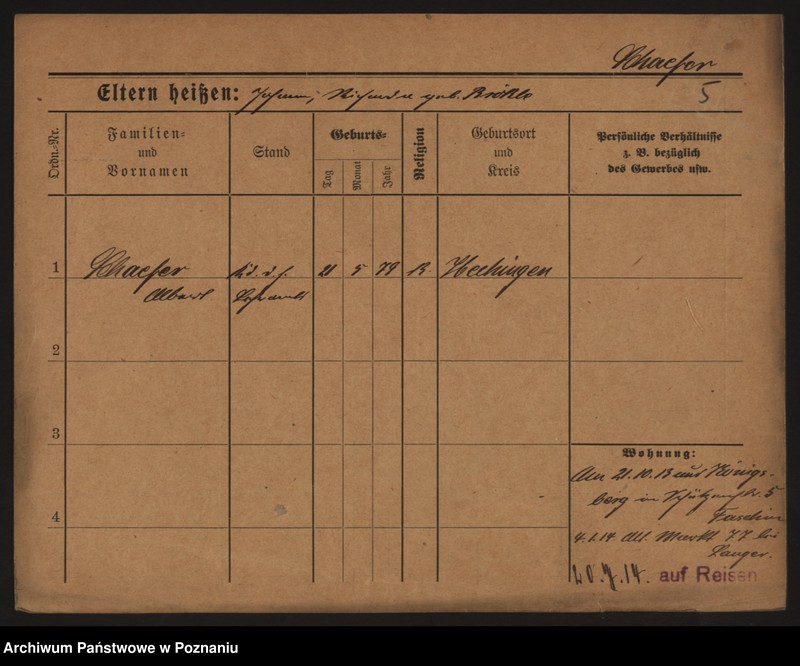 Schaefer
5
Eltern heißen: Johann, geb.
Ordn.-Nr.
Familien- und Vornamen
Stand
Geburts-
Tag
Monat
Jahr
Religion
Geburtsort und Kreis
Persönliche Verhältnisse z. B. bezüglich des Gewerbes usw.
1 Schaefer 21 5 79 R. Hechingen
Albert
2
3
4
Wohnung:
Am 21.10.13 aus Königs-
berg in Schützenstr. 5
4.1.14 Alt. Markt 77 bei
Langer.
20.7.14. auf Reisen
Archiwum Państwowe w Poznaniu